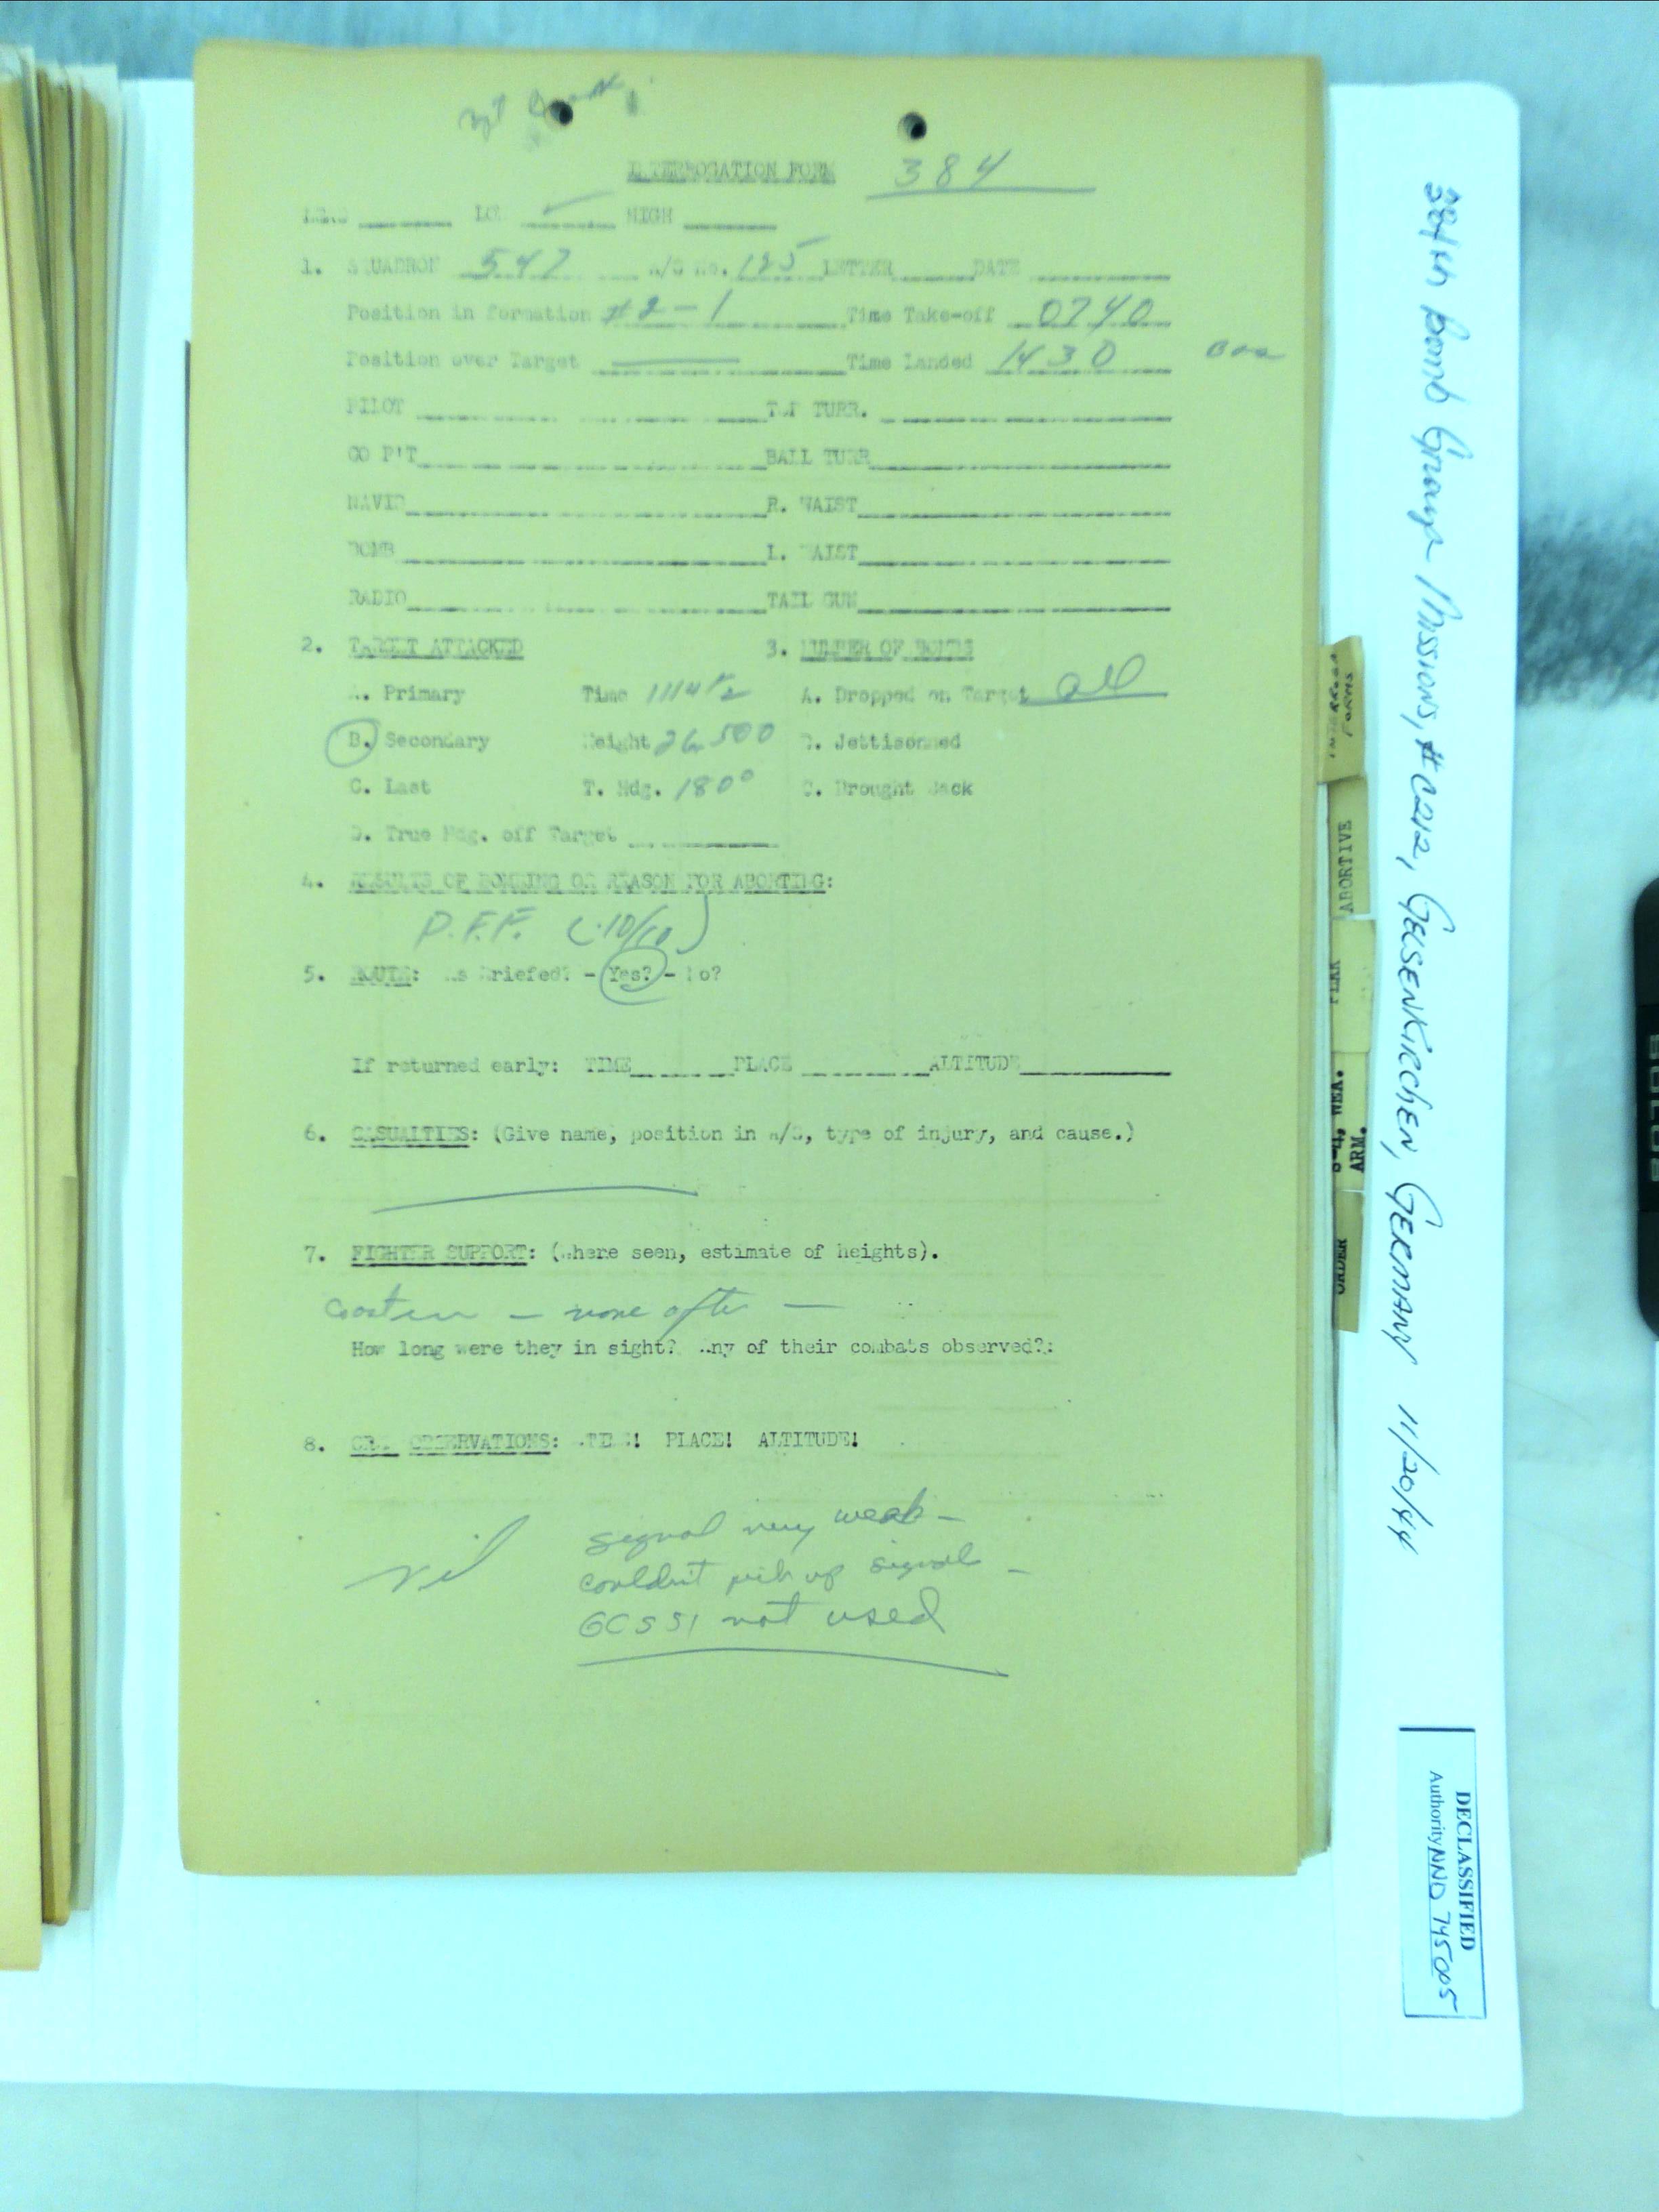 INTERROGATION FORM 384
LEAD LOW ✓ HIGH
1. SQUADRON 547 A/C No. 185 LETTER DATE
Position in formation #2-1 Time Take-off 0740
Position over Target — Time Landed 1430
PILOT TOP TURR.
CO P'T BALL TURR
NAVIG R. WAIST
BOMB L. WAIST
RADIO TAIL GUN
2. TARGET ATTACKED 3. NUMBER OF BOMBS
A. Primary Time 1114½ A. Dropped on Target all
B. Secondary Height 26,500 B. Jettisonned
C. Last T. Hdg. 180° C. Brought Back
D. True Hdg. off Target
4. RESULTS OF BOMBING OR REASON FOR ABORTING:
P.F.F. (10/10)
5. ROUTE: As Briefed? - Yes? - No?
If returned early: TIME PLACE ALTITUDE
6. CASUALTIES: (Give name, position in A/C, type of injury, and cause.)
7. FIGHTER SUPPORT: (Where seen, estimate of heights).
— none after —
How long were they in sight? Any of their combats observed?:
8. OBSERVATIONS: TIME! PLACE! ALTITUDE!
nil
signal very weak -
couldn't pick up signal -
not used
INTERROG. FORMS
ABORTIVE
FLAK
S-4, WEA.
ARM.
ORDER
384th Bomb Group Missions, #C212, GELSENKIRCHEN, GERMANY 11/20/44
DECLASSIFIED
Authority NND 745005